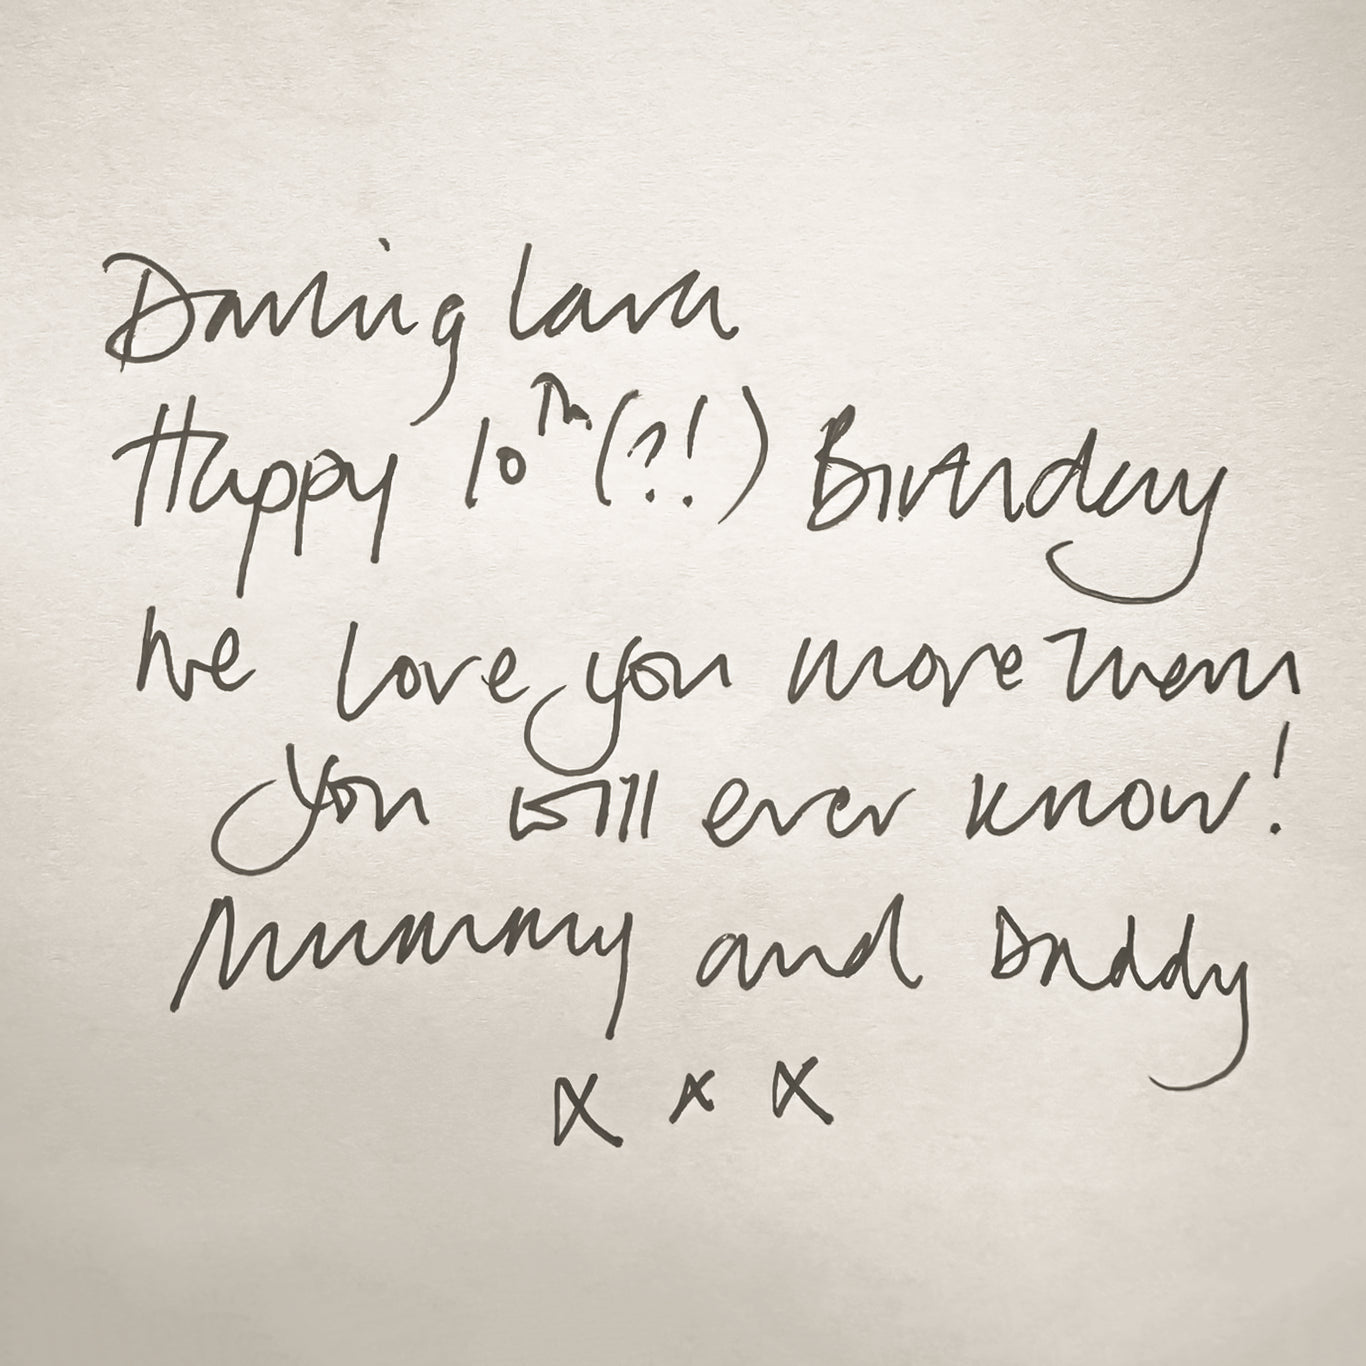 Darling Lara
Happy 10th (?!) Birthday
We love you more than
you will ever know!
Mummy and Daddy
x x x